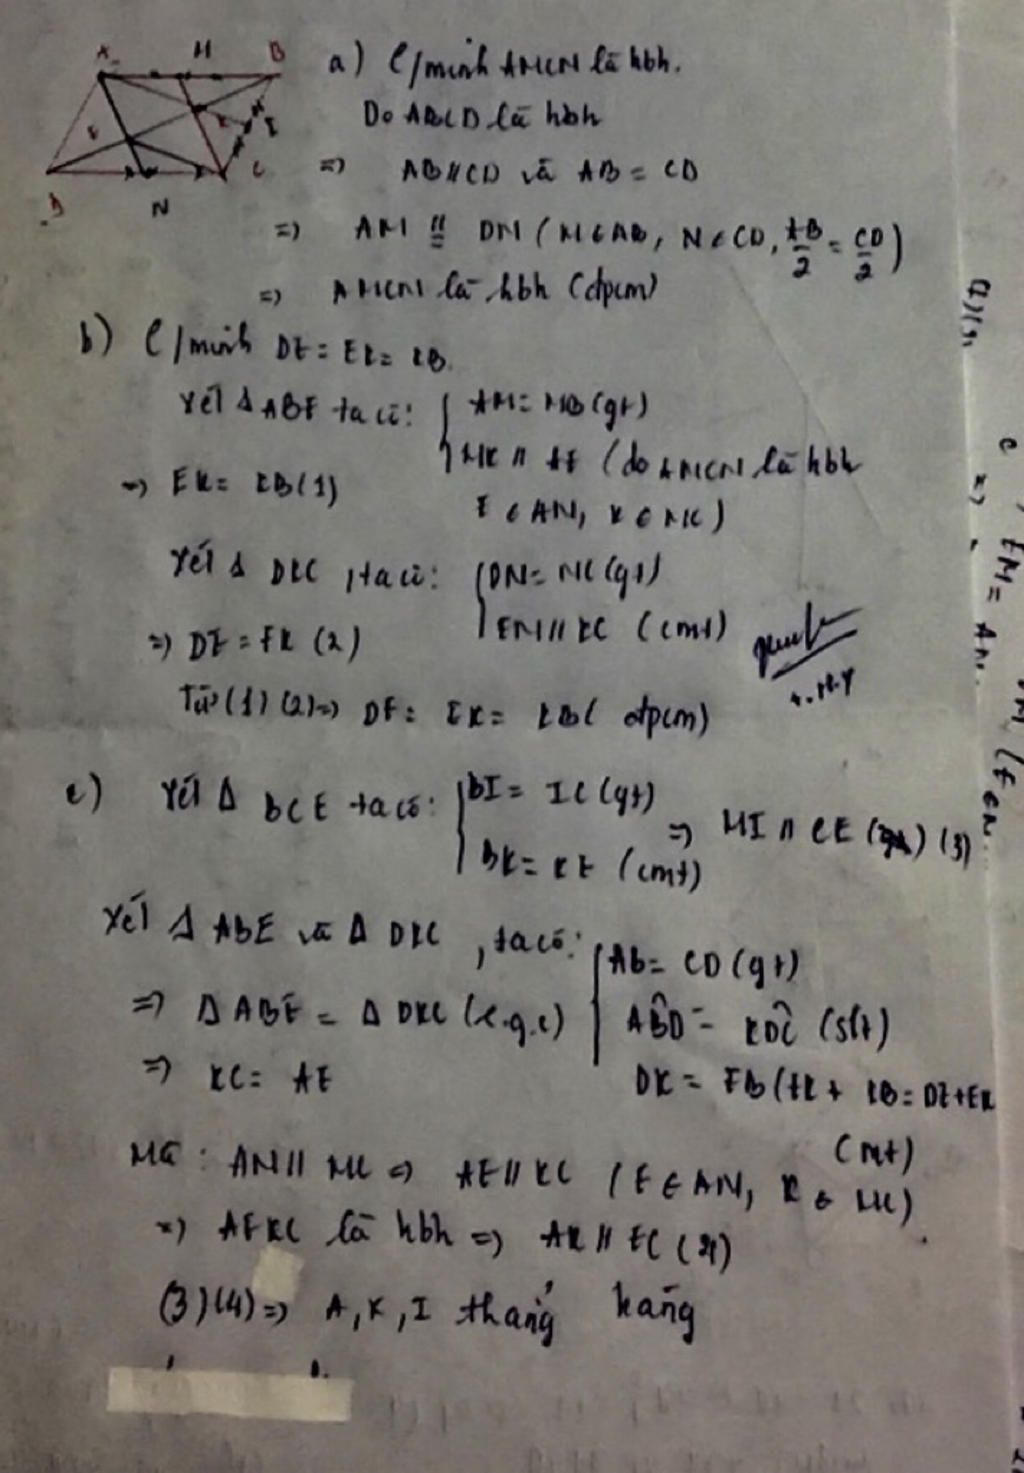 A M B
E K I
D N C
a) C/minh AMCN là hbh.
Do ABCD là hbh
=> AB//CD và AB = CD
=> AM // = DN (M ∈ AB, N ∈ CD, AB/2 = CD/2)
=> AMCN là hbh (đpcm)
b) C/minh DE = EK = KB.
Xét Δ ABE ta có: { AM = MB (gt)
MK // AE (do AMCN là hbh
=> EK = KB (1)
E ∈ AN, K ∈ MC)
Xét Δ DKC, ta có: { DN = NC (gt)
EN // KC (cmt)
=> DE = EK (2)
Từ (1) (2) => DE = EK = KB (đpcm)
c) Xét Δ BCE ta có: { BI = IC (gt)
BK = KE (cmt)
=> KI // CE (3)
Xét Δ ABE và Δ DKC, ta có: { AB = CD (gt)
=> Δ ABE = Δ DKC (c.g.c)
ABD = KDC (slt)
=> KC = AE
DK = EB (EK + KB = DE + EK
(cmt)
Mà: AN // MC => AE // KC (E ∈ AN, K ∈ MC)
=> AEKC là hbh => AK // EC (4)
(3) (4) => A, K, I thẳng hàng